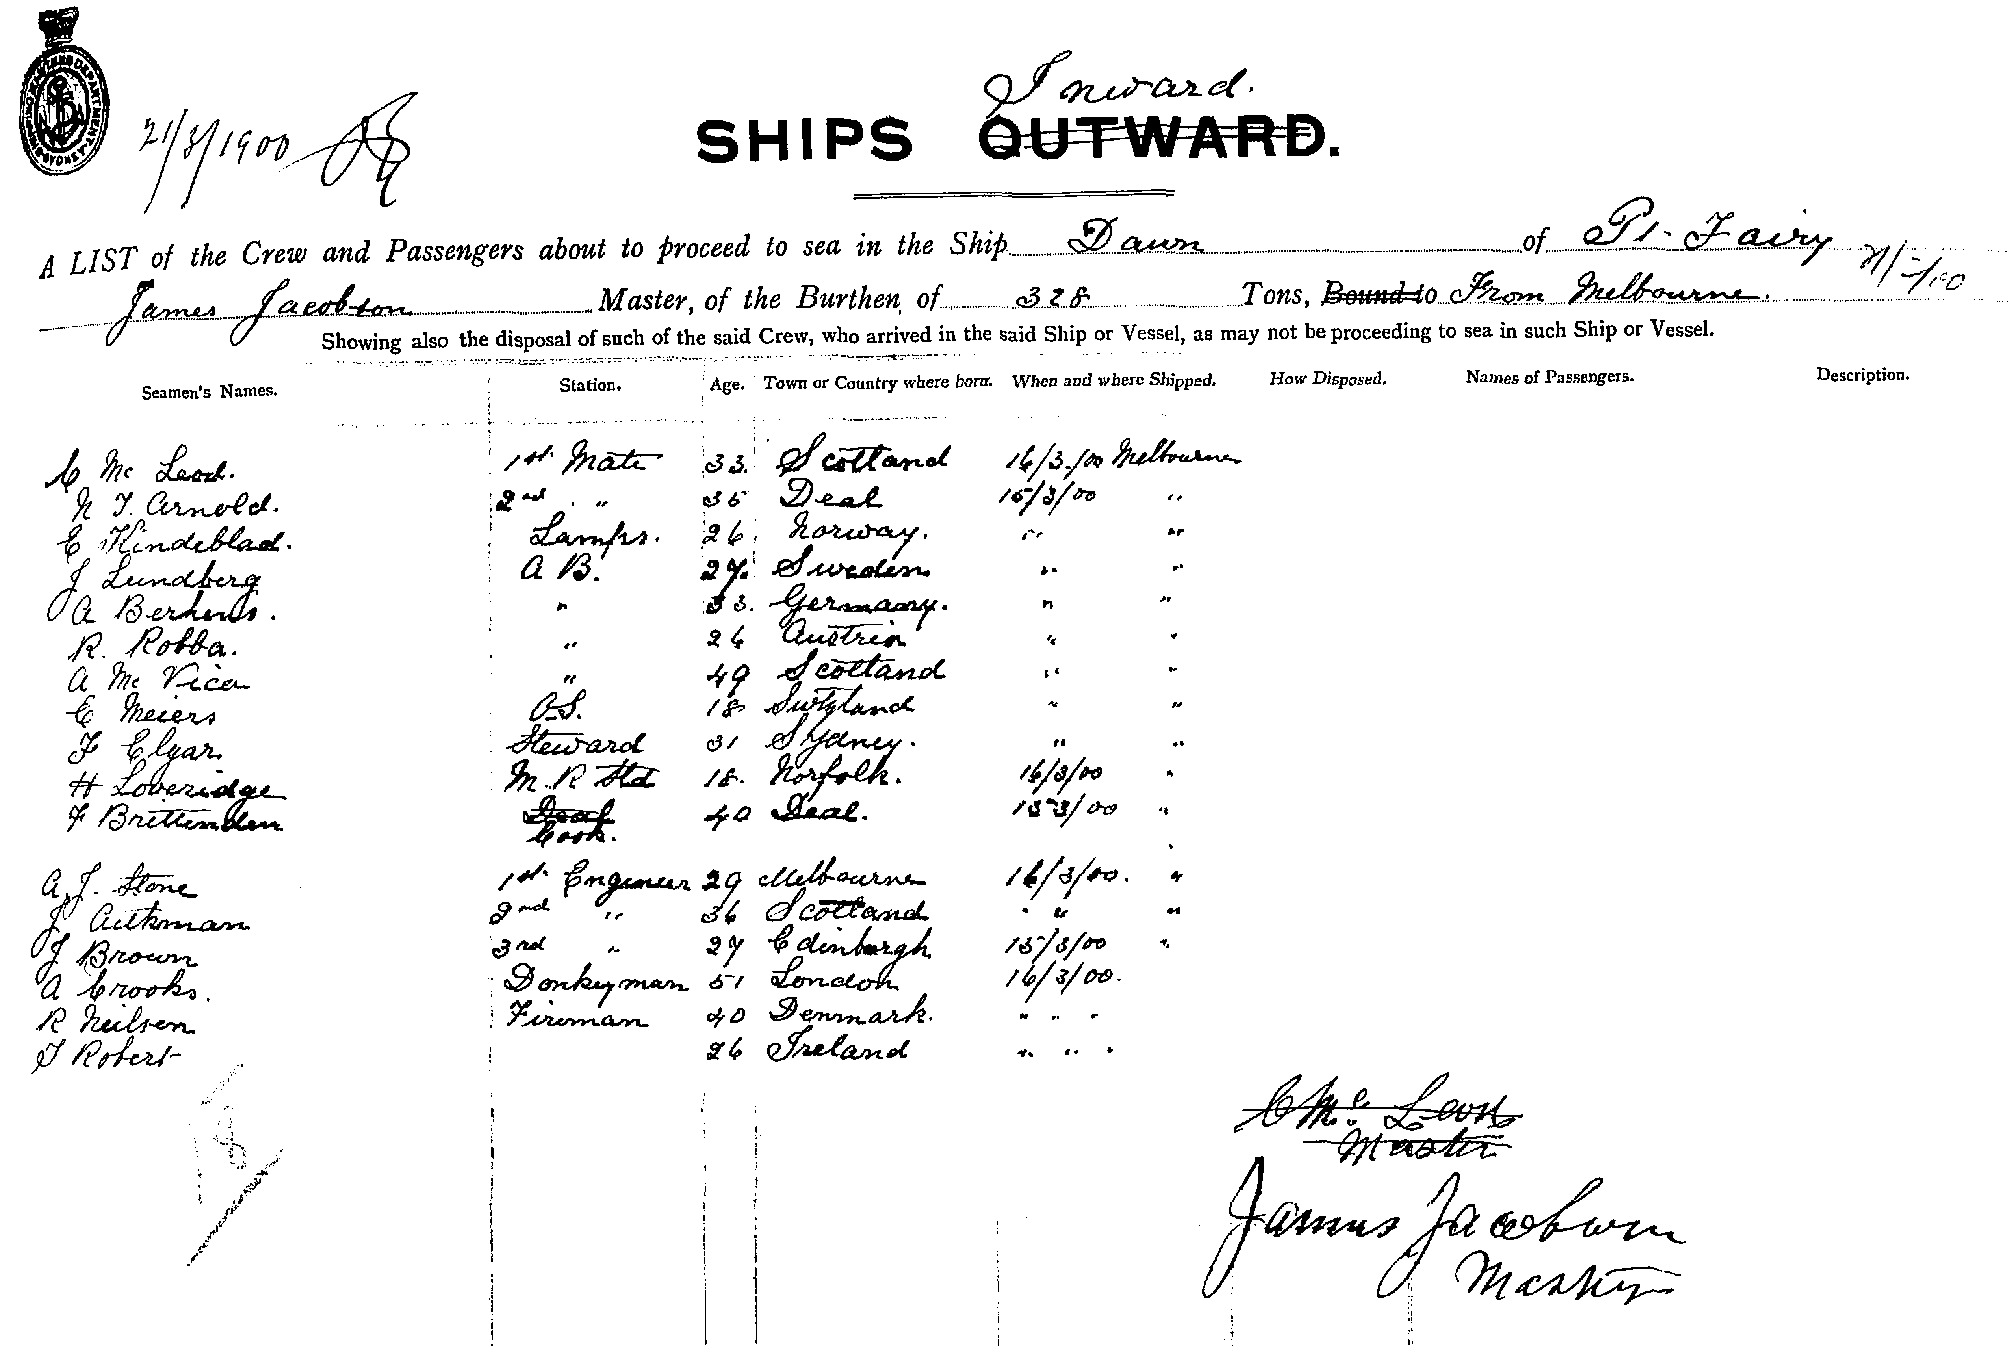 Inward.
21/3/1900
SHIPS OUTWARD.
A LIST of the Crew and Passengers about to proceed to sea in the Ship Dawn of Pt. Fairy
James Jacobson Master, of the Burthen of 328 Tons, Bound to From Melbourne.
Showing also the disposal of such of the said Crew, who arrived in the said Ship or Vessel, as may not be proceeding to sea in such Ship or Vessel.
Seamen's Names. Station. Age. Town or Country where born. When and where Shipped. How Disposed. Names of Passengers. Description.
C Mc Leod. 1st Mate 33. Scotland 16/3/00 Melbourne
N T. Arnold. 2nd " 35 Deal 15/3/00 "
E Kindeblad. Lamps. 26 Norway. " "
J Lundberg A B. 27. Sweden " "
A Berhens. " 33. Germany. " "
R. Robba. " 26 Austria " "
A Mc Vicar " 49 Scotland " "
E Meiers O.S. 18 Switzland " "
F Elgar. Steward 31 Sydney. " "
H Loveridge M. R Std 18. Norfolk. 16/3/00 "
F Brittenden Deal 40 Deal. 15/3/00 "
Cook.
A. J. Stone 1st Engineer 29 Melbourne 16/3/00. "
J Aitkman 2nd " 36 Scotland " "
J Brown 3rd " 27 Edinburgh 15/3/00 "
A Crooks. Donkeyman 51 London 16/3/00.
R Neilsen Fireman 40 Denmark. " " "
T Robert 26 Ireland " " "
18
C Mc Leod
Master
James Jacobson
Master